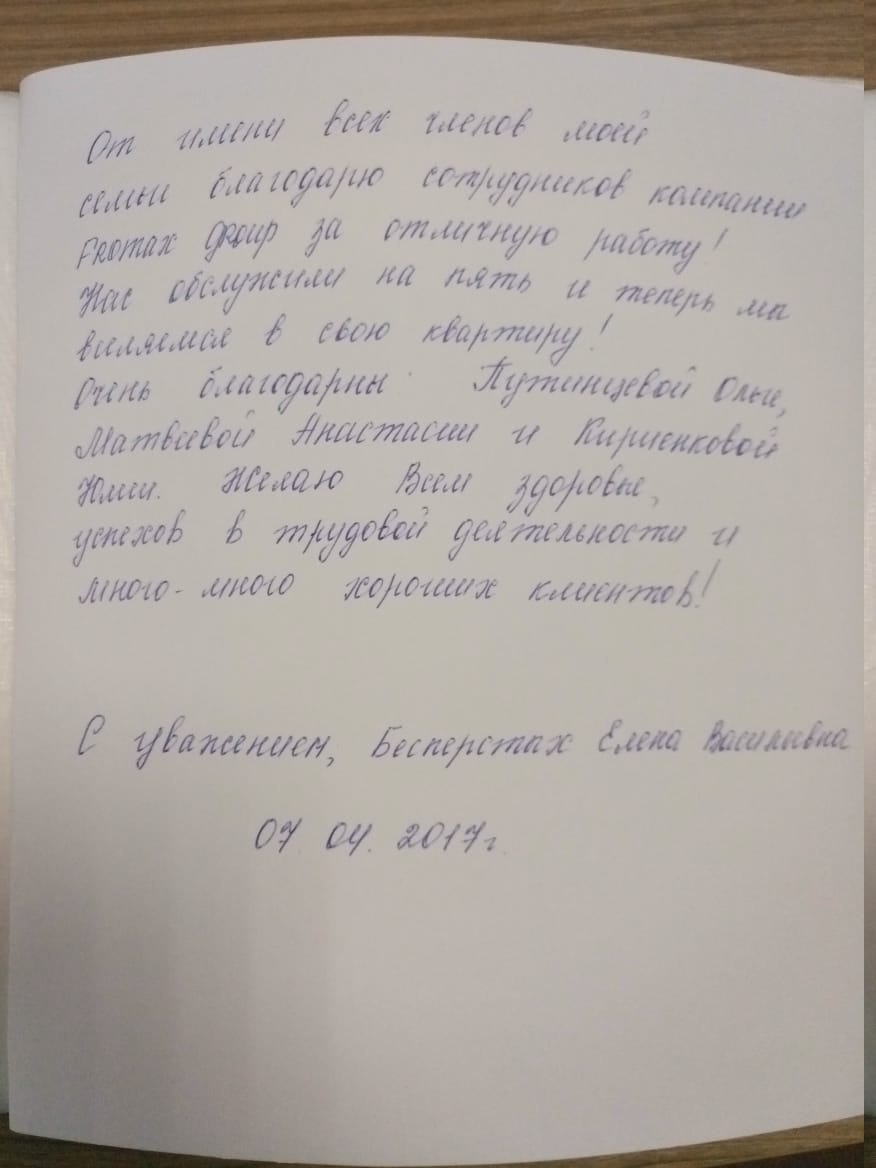 От имени всех членов моей
семьи благодарю сотрудников компании
Fromax group за отличную работу!
Нас обслужили на пять и теперь мы
вселяемся в свою квартиру!
Очень благодарны Путинцевой Ольге,
Матвеевой Анастасии и Кириенковой
Юлии. Желаю Всем здоровье,
успехов в трудовой деятельности и
много-много хороших клиентов!
С уважением, Бесперстах Елена Васильевна
07.04.2017г.